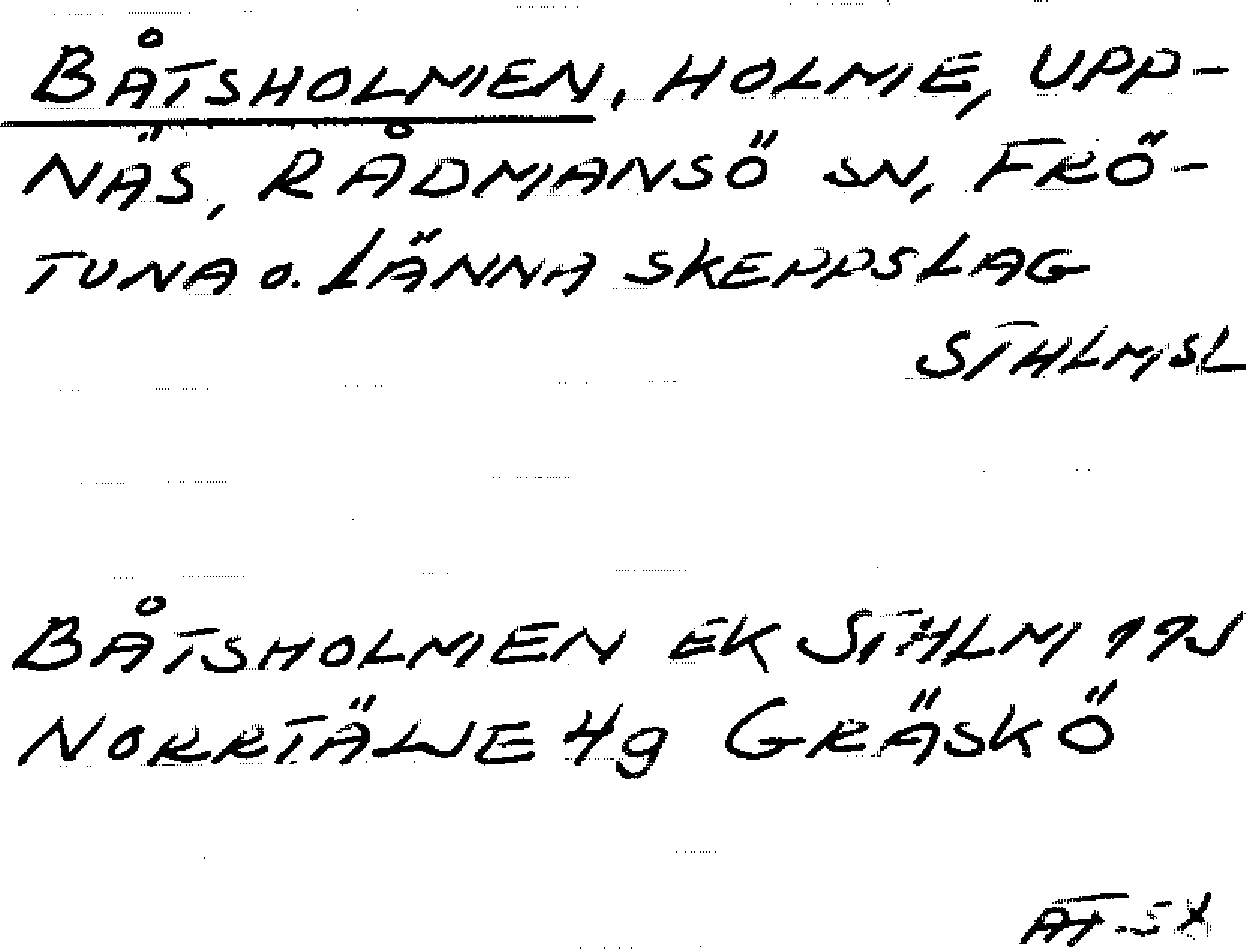 BÅTSHOLMEN, HOLME, UPP-
NÄS, RÅDMANSÖ SN, FRÖ-
TUNA O. LÄNNA SKEPPSLAG
STHLMSL
BÅTSHOLMEN EK STHLM
NORRTÄLJE 4g GRÄSKÖ